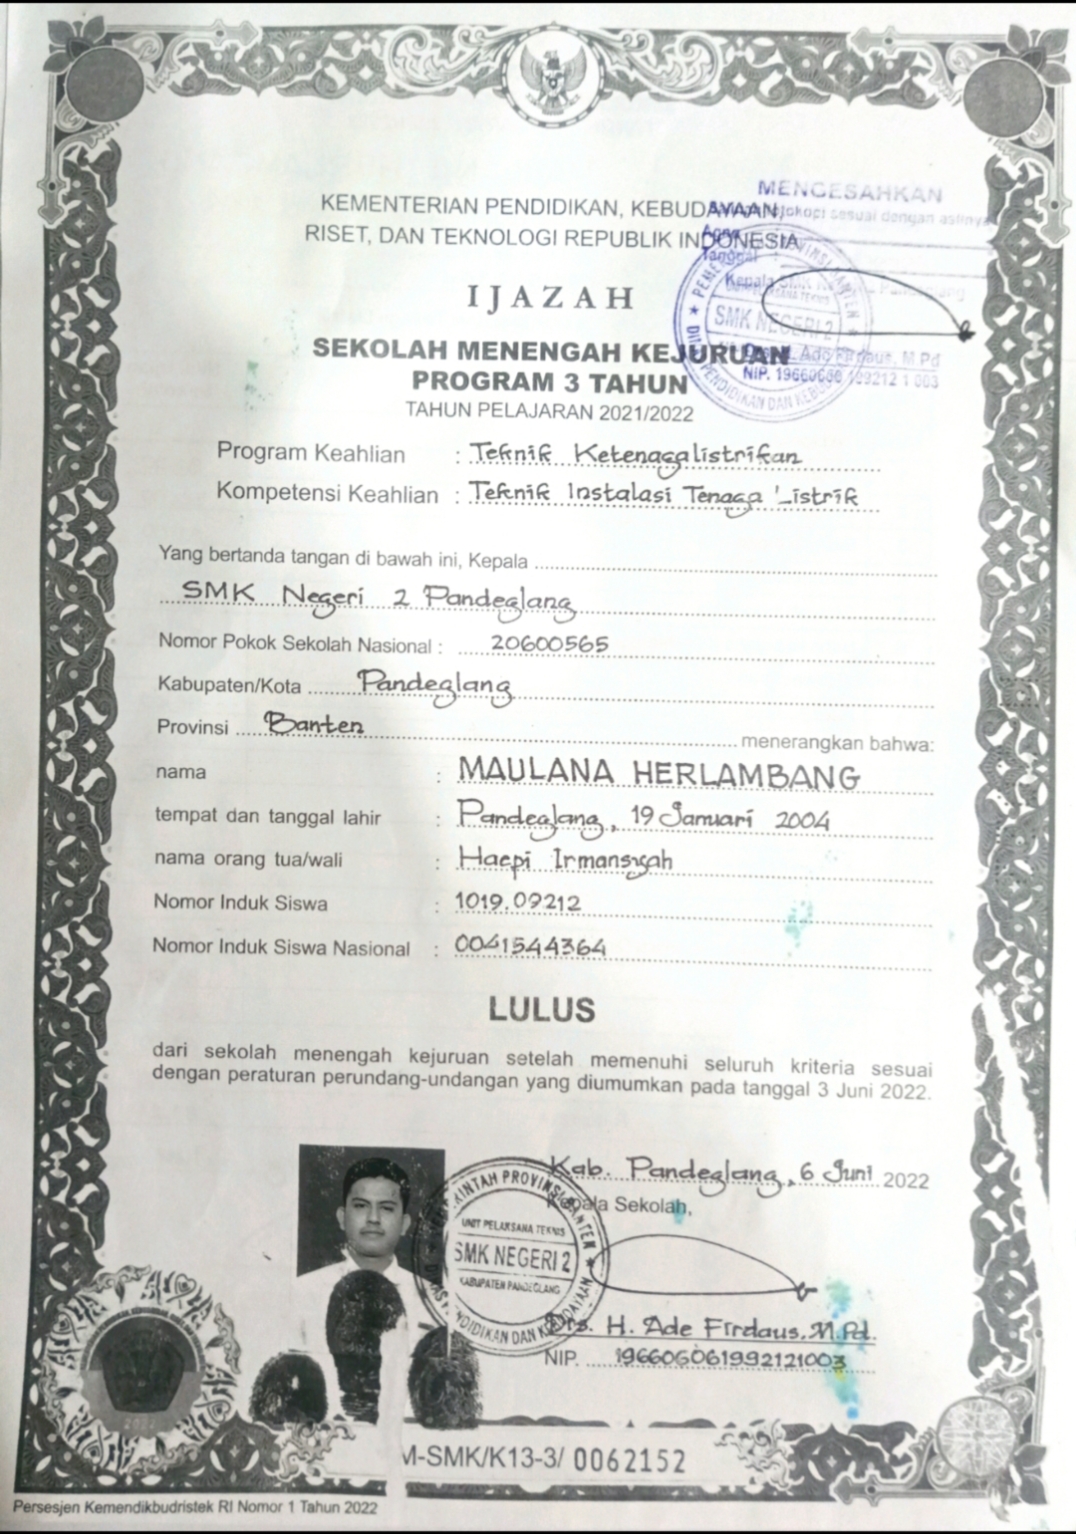 KEMENTERIAN PENDIDIKAN, KEBUDAYAAN,
RISET, DAN TEKNOLOGI REPUBLIK INDONESIA
MENGESAHKAN
sesuai dengan aslinya
Tanggal
Kepala SMK
PEMERINTAH PROVINSI BANTEN
SMK NEGERI 2
DINAS PENDIDIKAN DAN KEBUDAYAAN
Ade Firdaus, M.Pd
NIP. 19660606 199212 1 003
IJAZAH
SEKOLAH MENENGAH KEJURUAN
PROGRAM 3 TAHUN
TAHUN PELAJARAN 2021/2022
Program Keahlian : Teknik Ketenagalistrikan
Kompetensi Keahlian : Teknik Instalasi Tenaga Listrik
Yang bertanda tangan di bawah ini, Kepala
SMK Negeri 2 Pandeglang
Nomor Pokok Sekolah Nasional : 20600565
Kabupaten/Kota Pandeglang
Provinsi Banten menerangkan bahwa:
nama : MAULANA HERLAMBANG
tempat dan tanggal lahir : Pandeglang, 19 Januari 2004
nama orang tua/wali : Haepi Irmansyah
Nomor Induk Siswa : 1019.09212
Nomor Induk Siswa Nasional : 0041544364
LULUS
dari sekolah menengah kejuruan setelah memenuhi seluruh kriteria sesuai
dengan peraturan perundang-undangan yang diumumkan pada tanggal 3 Juni 2022.
Kab. Pandeglang, 6 Juni 2022
Kepala Sekolah,
PEMERINTAH PROVINSI BANTEN
UNIT PELAKSANA TEKNIS
SMK NEGERI 2
KABUPATEN PANDEGLANG
DINAS PENDIDIKAN DAN KEBUDAYAAN
Drs. H. Ade Firdaus, M.Pd.
NIP. 196606061992121003
M-SMK/K13-3/ 0062152
Persesjen Kemendikbudristek RI Nomor 1 Tahun 2022